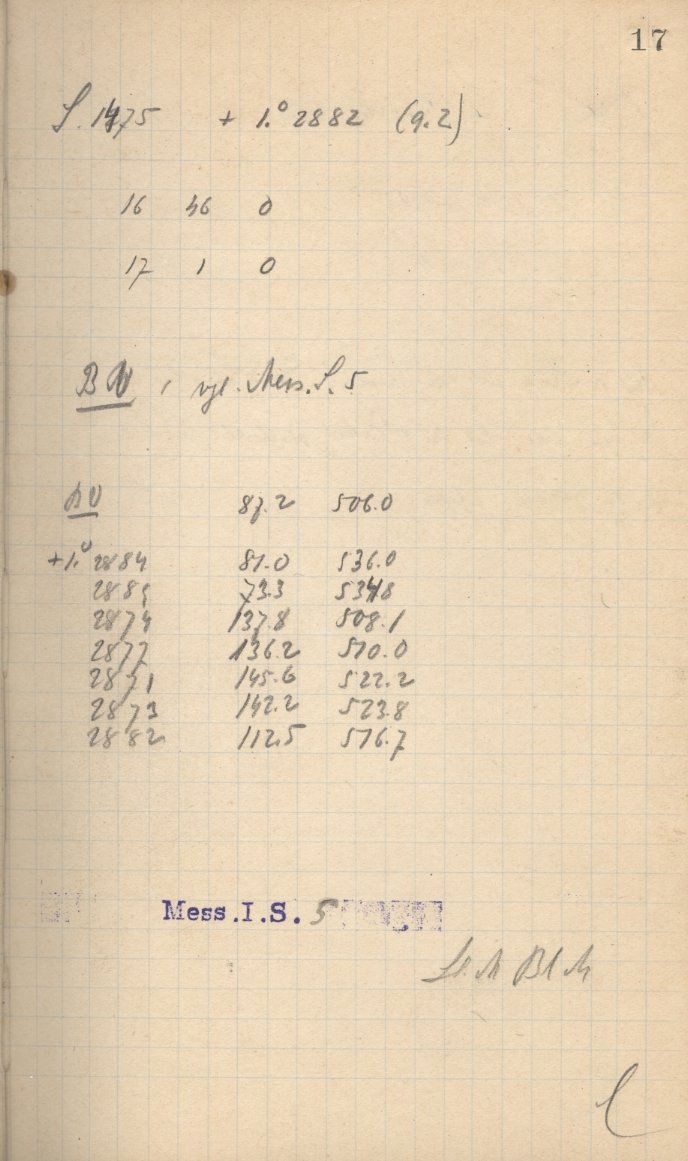 17
S. 1475 + 1.° 2882 (9.2)
16 46 0
17 1 0
BV, vgl. Mess. S. 5
BV 87.2 506.0
+1.° 2884 81.0 536.0
2885 73.3 534.8
2874 137.8 508.1
2877 136.2 510.0
2871 145.6 522.2
2873 142.2 523.8
2882 112.5 516.7
Mess.I.S. 5